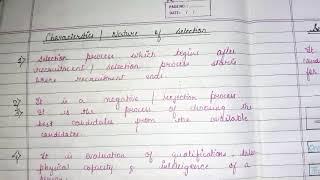 PAGE NO.:
DATE: / /
Characteristics / Nature of Selection
1) Selection process which begins after
recruitment / selection process starts
where recruitment ends.
2) It is a negative / rejection process
3) It is the process of choosing the
best candidates from the available
candidates
4) It is evaluation of qualifications,
physical capacity & intelligence of a